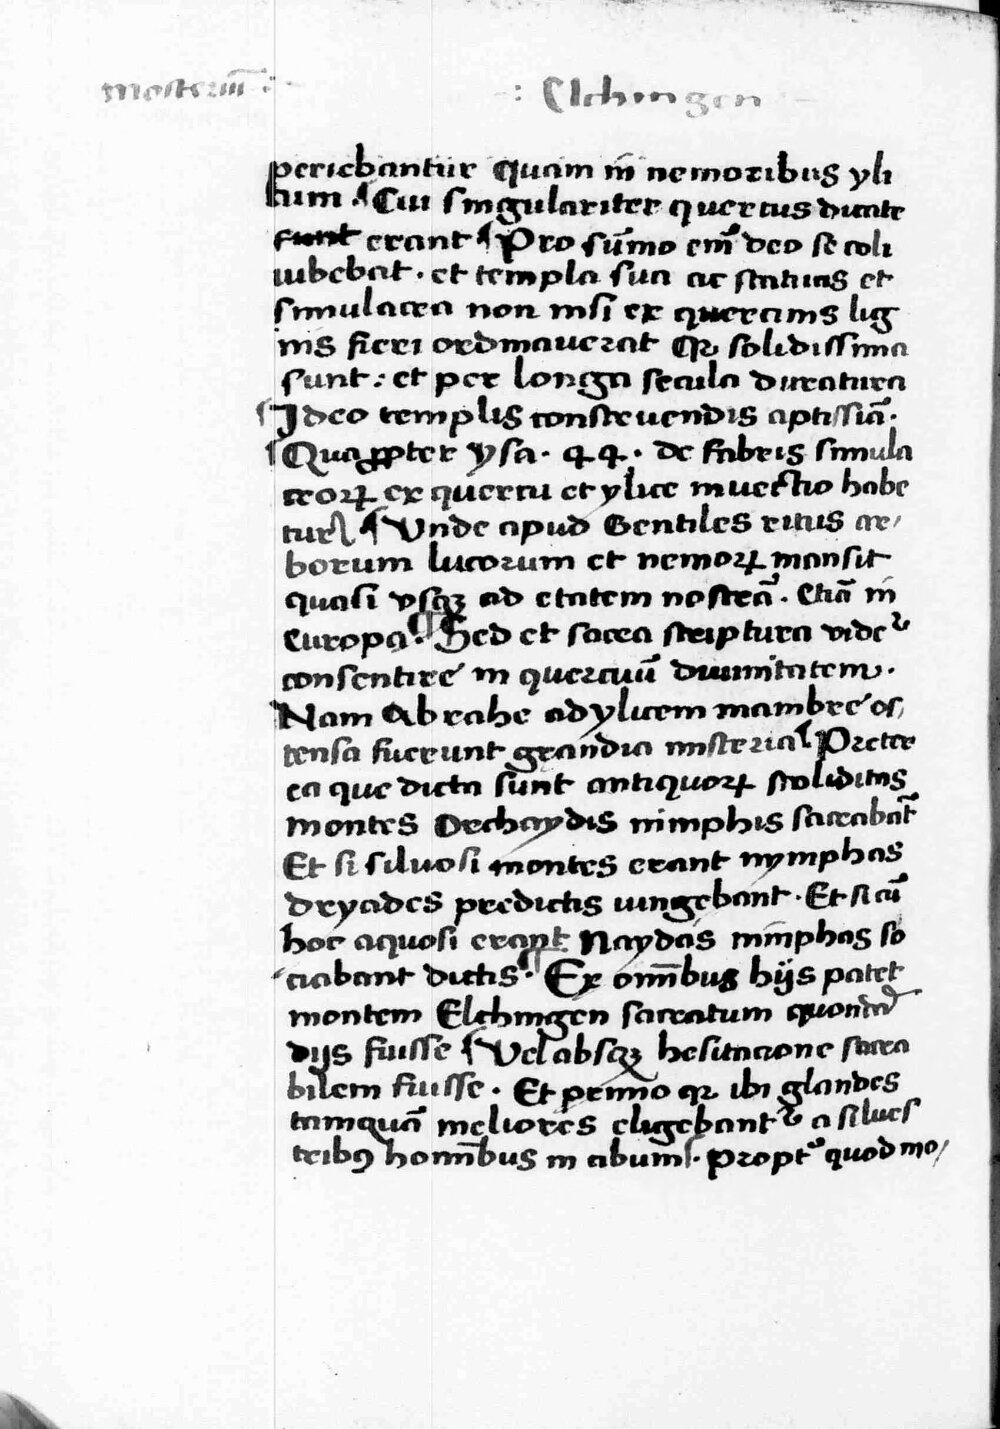 mosteriū :  : Elchingen
periebantur quam in̄ nemoribus yli
tum . ¶ Cui singulariter quercus dicate
sunt erant ¶ Pro sūmo em̄ deo se coli
iubebat . et templa sua ac statuas et
simulacra non nisi ex quercinis lig
nis fieri ordinauerat Qꝛ solidissima
sunt : et per longa secula duratura
¶ Ideo templis construendis aptissiā .
¶ Quaꝓpter ysa . 44 . de fabris simula
croꝝ ex quercu et ylice inuectio habe
tur ¶ Unde apud Gentiles ritus ar/
borum lucorum et nemoꝝ mansit
quasi vsqꝫ ad etatem nostrā . Etiā in̄
europa . ¶ Sed et sacra scriptura videʳ
consentire in quercuū diuinitatem .
Nam Abrahe ad ylicem mambre os/
tensa fuerunt grandia misteria ¶ Preter
ea que dicta sunt antiquoꝝ stoliditas
montes Orchaydis nimphis sacrabāt
Et si siluosi montes erant nymphas
dryades predictis iungebant . Et si cū
hoc aquosi erant Naydas nimphas so
ciabant dictis . ¶ Ex om̄ibus hijs patet
montem Elchingen sacratum quondā
dijs fuisse ¶ Vel absqꝫ hesitacione sacra
bilem fuisse . Et primo qꝛ ibi glandes
tamquā meliores eligebantʳ a silues
tribꝰ hom̄ibus in cibum . proptʳ quod mo/